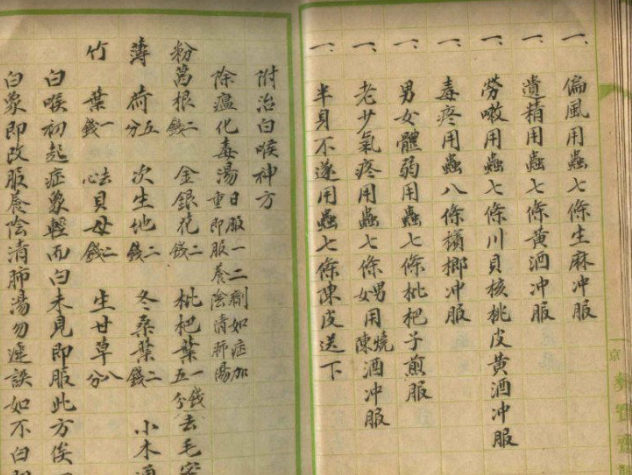 一、偏風用蟲七條生麻冲服
一、遺精用蟲七條黃酒冲服
一、勞嗽用蟲七條川貝核桃皮黃酒冲服
一、毒疼用蟲八條檳榔冲服
一、男女體弱用蟲七條枇杷子煎服
一、老少氣疼用蟲七條男用燒女用陳酒冲服
一、半身不遂用蟲七條陳皮送下
附治白喉神方
除瘟化毒湯日服一二劑如症加重即服養陰清肺湯
粉葛根二錢 金銀花二錢 枇杷葉一錢五分去毛蜜
薄荷五分 次生地二錢 冬桑葉二錢 小木通
竹葉一錢 去心貝母二錢 生甘草八分
白喉初起症象輕而白未見即服此方俟
白象即改服養陰清肺湯勿遲誤如不白